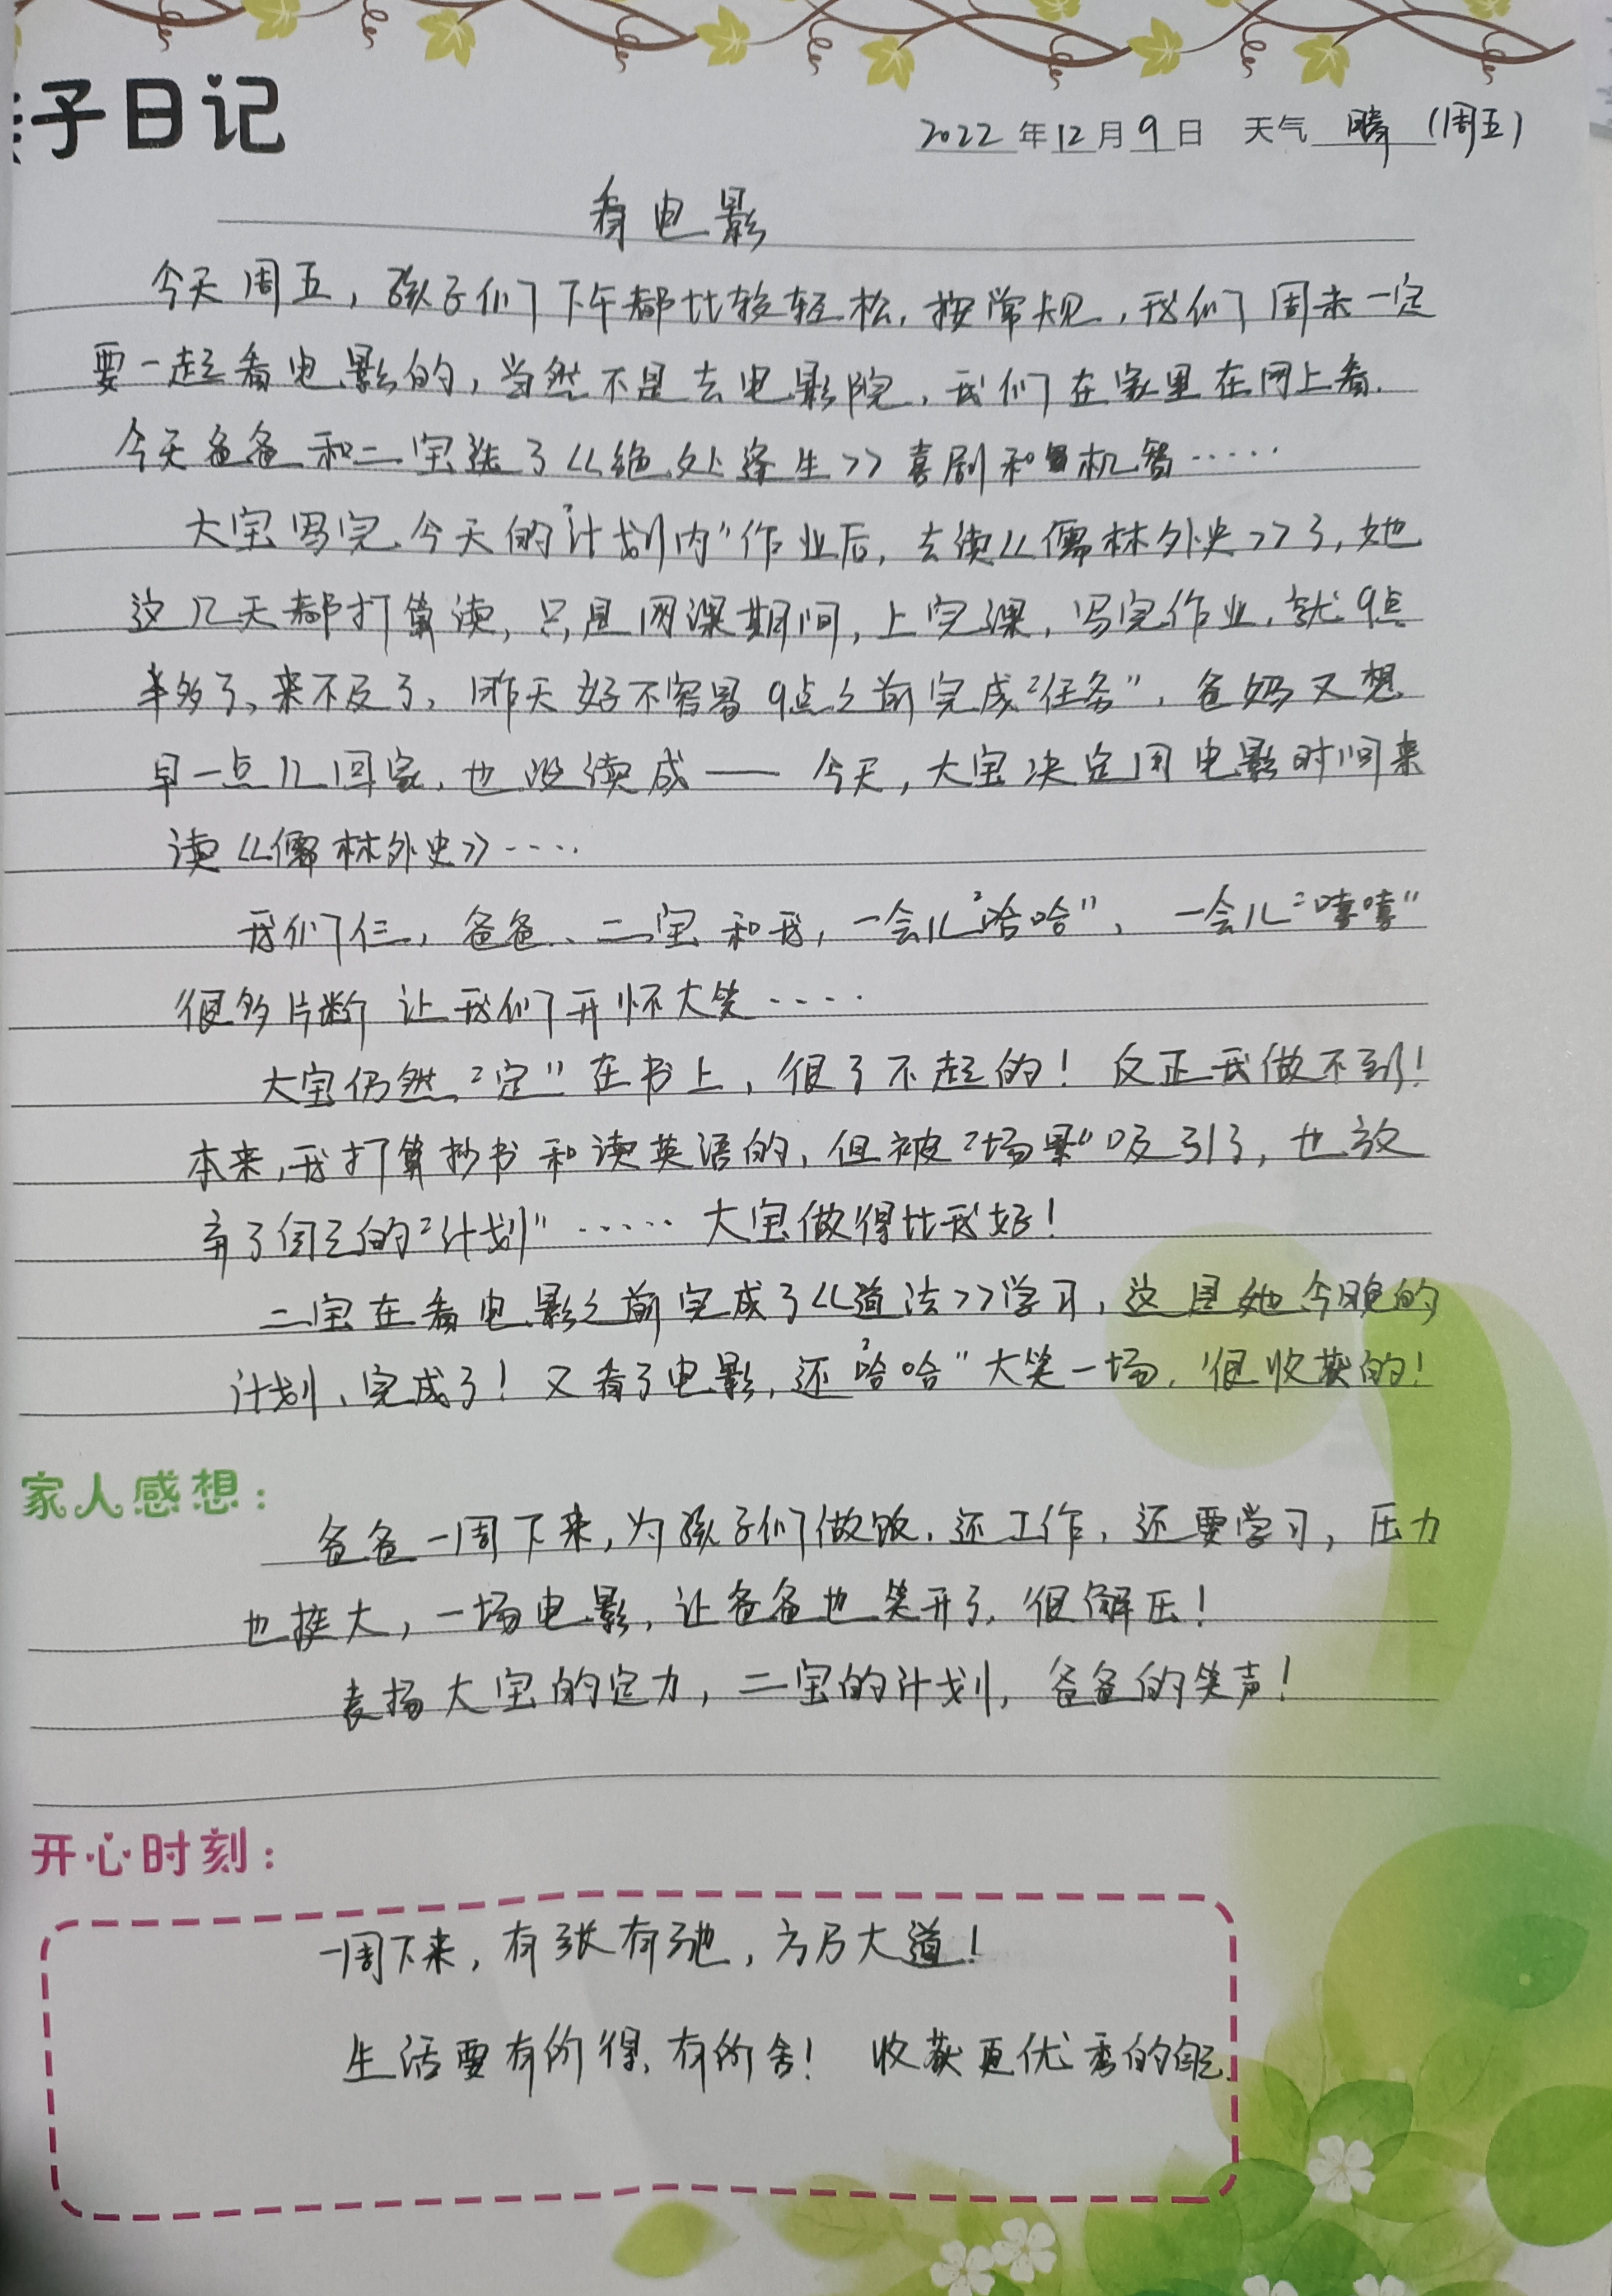 子日记
2022年12月9日 天气 晴 (周五)
看电影
今天周五，孩子们下午都比较轻松，按常规，我们周末一定
要一起看电影的，当然不是去电影院，我们在家里在网上看.
今天爸爸和二宝选了《绝处逢生》喜剧和机智……
大宝写完今天的“计划内”作业后，去读《儒林外史》了，她
这几天都打算读，只是网课期间，上完课，写完作业，就9点
半多了，来不及了，昨天好不容易9点之前完成“任务”，爸妈又想
早一点儿回家，也没读成——今天，大宝决定用电影时间来
读《儒林外史》……
我们仨，爸爸、二宝和我，一会儿“哈哈”，一会儿“嘻嘻”
很多片断让我们开怀大笑……
大宝仍然“定”在书上，很了不起的！反正我做不到！
本来，我打算抄书和读英语的，但被“场景”吸引了，也放
弃了自己的“计划”……大宝做得比我好！
二宝在看电影之前完成了《道法》学习，这是她今晚的
计划，完成了！又看了电影，还“哈哈”大笑一场，很收获的！
家人感想：
爸爸一周下来，为孩子们做饭，还工作，还要学习，压力
也挺大，一场电影，让爸爸也笑开了，很解压！
表扬大宝的定力，二宝的计划，爸爸的笑声！
开心时刻：
一周下来，有张有弛，方乃大道！
生活要有所得，有所舍！ 收获更优秀的自己.